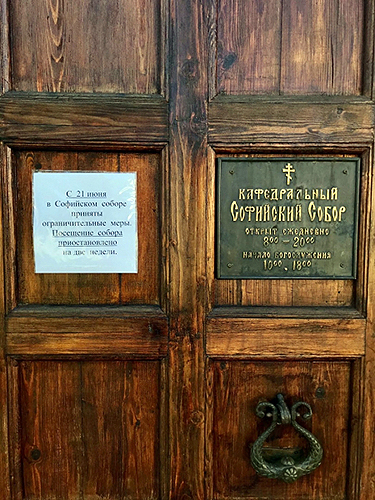 С 21 июня
в Софийском соборе
приняты
ограничительные меры.
Посещение собора
приостановлено
на две недели.
КАФЕДРАЛЬНЫЙ
СОФИЙСКИЙ СОБОР
ОТКРЫТ ЕЖЕДНЕВНО
8⁰⁰ – 20⁰⁰
НАЧАЛО БОГОСЛУЖЕНИЯ
10⁰⁰, 18⁰⁰